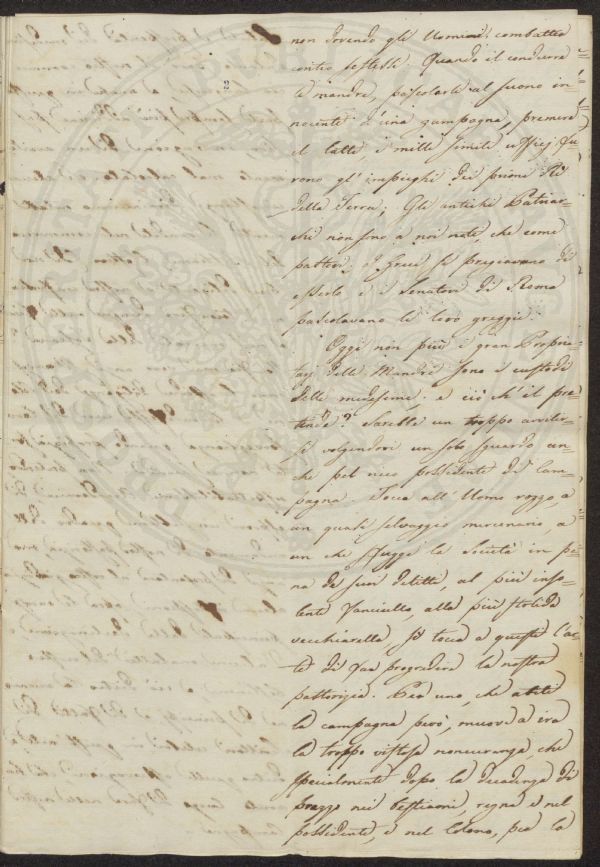 2
non dovendo gli Uomini combatter
contro se stessi. Quando il condurre
le mandre, pascolarle al suono in=
nocente d'una zampogna, premere
il latte e mille simili uffizj fu
rono gl'impieghi dei primi Rè
della Terra; Gli antichi Patriar=
chi non sono a noi noti, che come
pastori. I Greci si pregiavano di
esserlo e i Senatori di Roma
pascolavano le loro greggie.
Oggi non più i gran Proprie
tarj delle Mandre sono i custodi
delle medesime: e ciò ch'il pre=
tende? Sarebbe un troppo avvilir=
si volgendovi un solo sguardo an=
che pel ricco possidente di Cam=
pagna. Tocca all'Uomo rozzo, a
un quasi selvaggio mercenario, a
un che fugge la Società in pe=
na de suoi delitti, al più inso=
lente fanciullo, alla più stolida
vecchiarella, si tocca a questi l'ar=
te di far progredire la nostra
pastorizia. Per uno, che abiti
la campagna però, muove a ira
la troppo vistosa noncuranza, che
specialmente dopo la decadenza di
prezzo nei bestiami, regna e nel
possidente, e nel Colono, per la